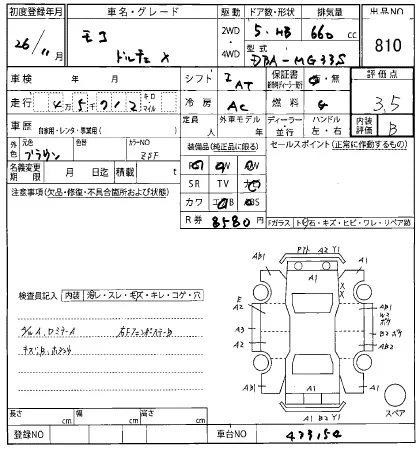 初度登録年月 車名・グレード 駆動 ドア数・形状 排気量 出品NO
26/11月 モコ 2WD 5.HB 660 cc 810
ドルチェ X 4WD 型式 DBA-MG33S
車検 年 月 シフト I AT 保証書 有・無 評価点
走行 4万5712 キロ マイル 冷房 AC 燃料 G 3.5
車歴 自家用・レンタ・事業用( ) 定員 人 外車モデル 年 ディーラー 並行 ハンドル 左・右 内装評価 B
色 元色 ブラウン 色替 カラーNO ZSF 装備品(純正品に限る) セールスポイント(正常に動作する)
名義変更期限 月 日迄 積載 t PS AW PW
注意事項(欠品・修復・不具合箇所および状態) SR TV ナビ
カワ エアB ABS
R券 8580円 Fガラス トビ石・キズ・ヒビ・ワレ・リペア跡
A2 Y1
A1
AB1 A1
X
X
E
A2 W2
A3 B2
A2 A2
AB1 A1 A1
A1 B2 Y1
スペア
検査員記入 内装 汚レ・スレ・モゲ・キズ・キレ・コゲ・穴
長さ cm 幅 cm 高さ cm
登録NO 車台NO 423154